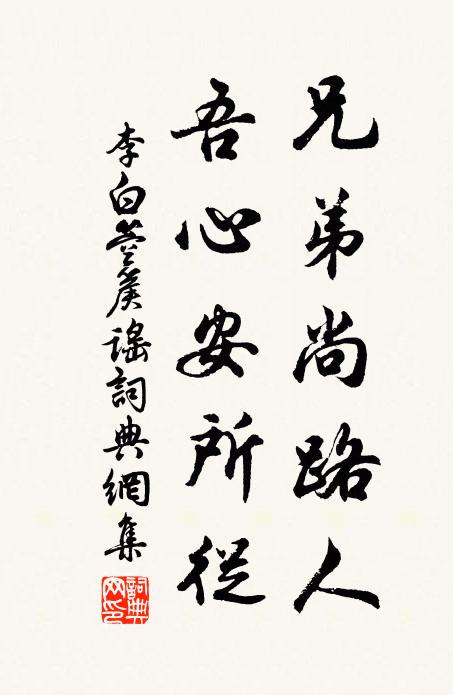 兄弟尚路人
吾心安所從
李白箜篌謠詞典網集
詞典網印